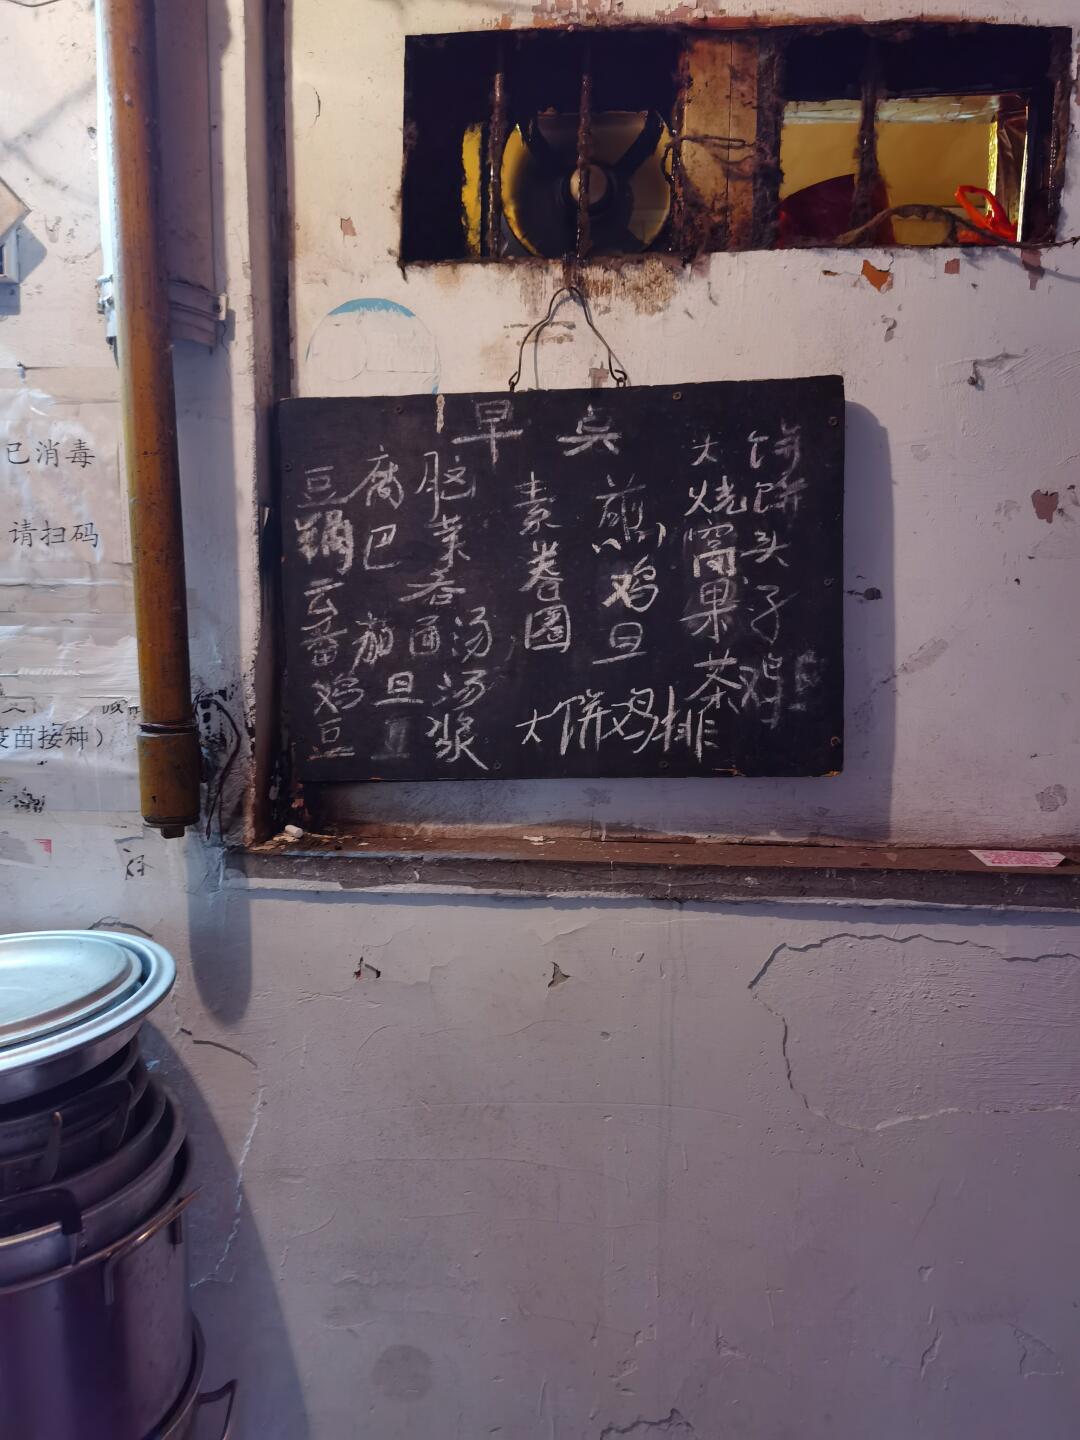 早点
豆腐脑
锅巴菜
云吞
番茄面汤
鸡旦汤
豆浆
素卷圈
煎鸡旦
大饼
烧饼
窝头
果子
茶鸡
大饼鸡排
已消毒
请扫码
疫苗接种）